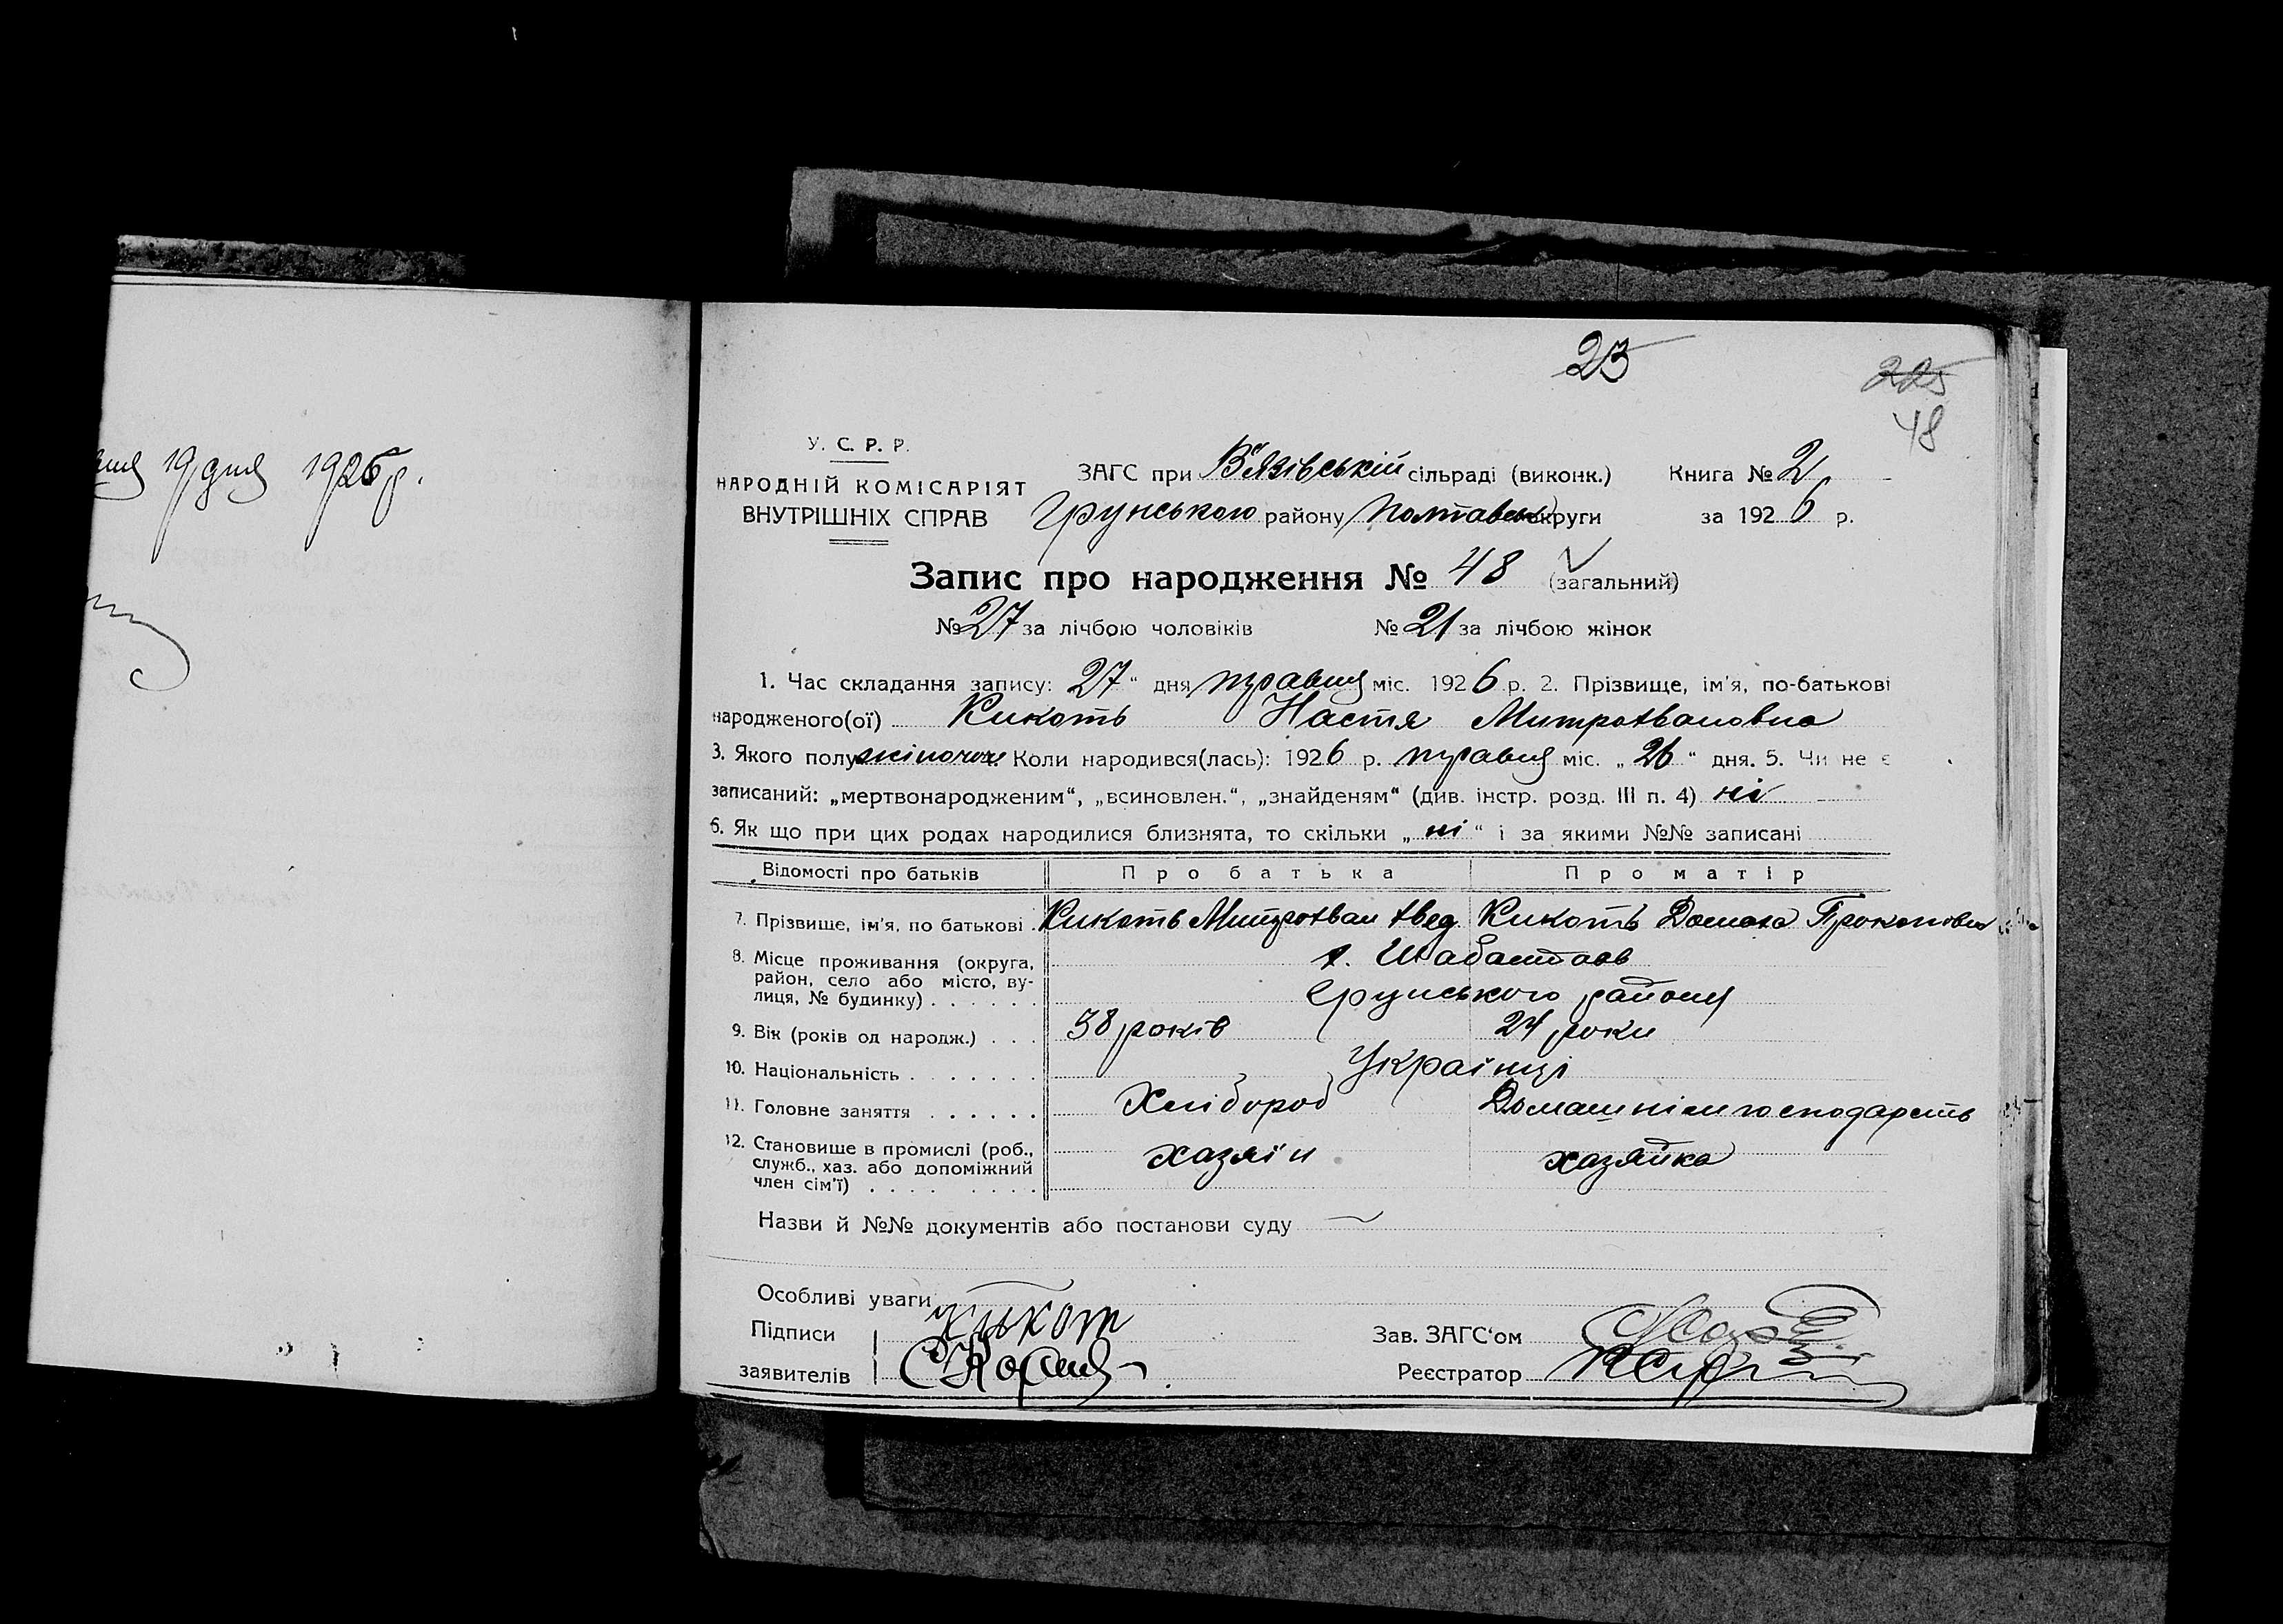 19 дня 1926 р.
23
225
48
У. С. Р. Р.
НАРОДНІЙ КОМІСАРІЯТ
ВНУТРІШНІХ СПРАВ
ЗАГС при В'язівській сільраді (виконк.) Книга № 2
Грунського району Полтавськ округи за 1926 р.
Запис про народження № 48 (загальний)
№ 27 за лічбою чоловіків № 21 за лічбою жінок
1. Час складання запису: 27 " дня травня міс. 1926 р. 2. Прізвище, ім'я, по-батькові
народженого(ої) Кикоть Настя Митрофановна
3. Якого полу жіночого Коли народився(лась): 1926 р. травня міс. „ 26 " дня. 5. Чи не є
записаний: „мертвонародженим", „всиновлен.", „знайденям" (див. інстр. розд. III п. 4) ні
6. Як що при цих родах народилися близнята, то скільки „ ні " і за якими №№ записані
Відомості про батьків Про батька Про матір
7. Прізвище, ім'я, по батькові . Кикоть Митрофан Фед. Кикоть Домаха Прокоповна
8. Місце проживання (округа,
район, село або місто, ву-
лиця, № будинку) . . . . . .
Грунського району
9. Вік (років од народж.) . . . 38 років 24 роки
10. Національність . . . . . . . Українці
11. Головне заняття . . . . . . Хлібороб Домашнім господарств
12. Становише в промислі (роб.,
служб., хаз. або допоміжний
член сім'ї) . . . . . . . .
хазяїн хазяйка
Назви й №№ документів або постанови суду
Особливі уваги
Підписи Кикот Зав. ЗАГС'ом
заявителів Реєстратор